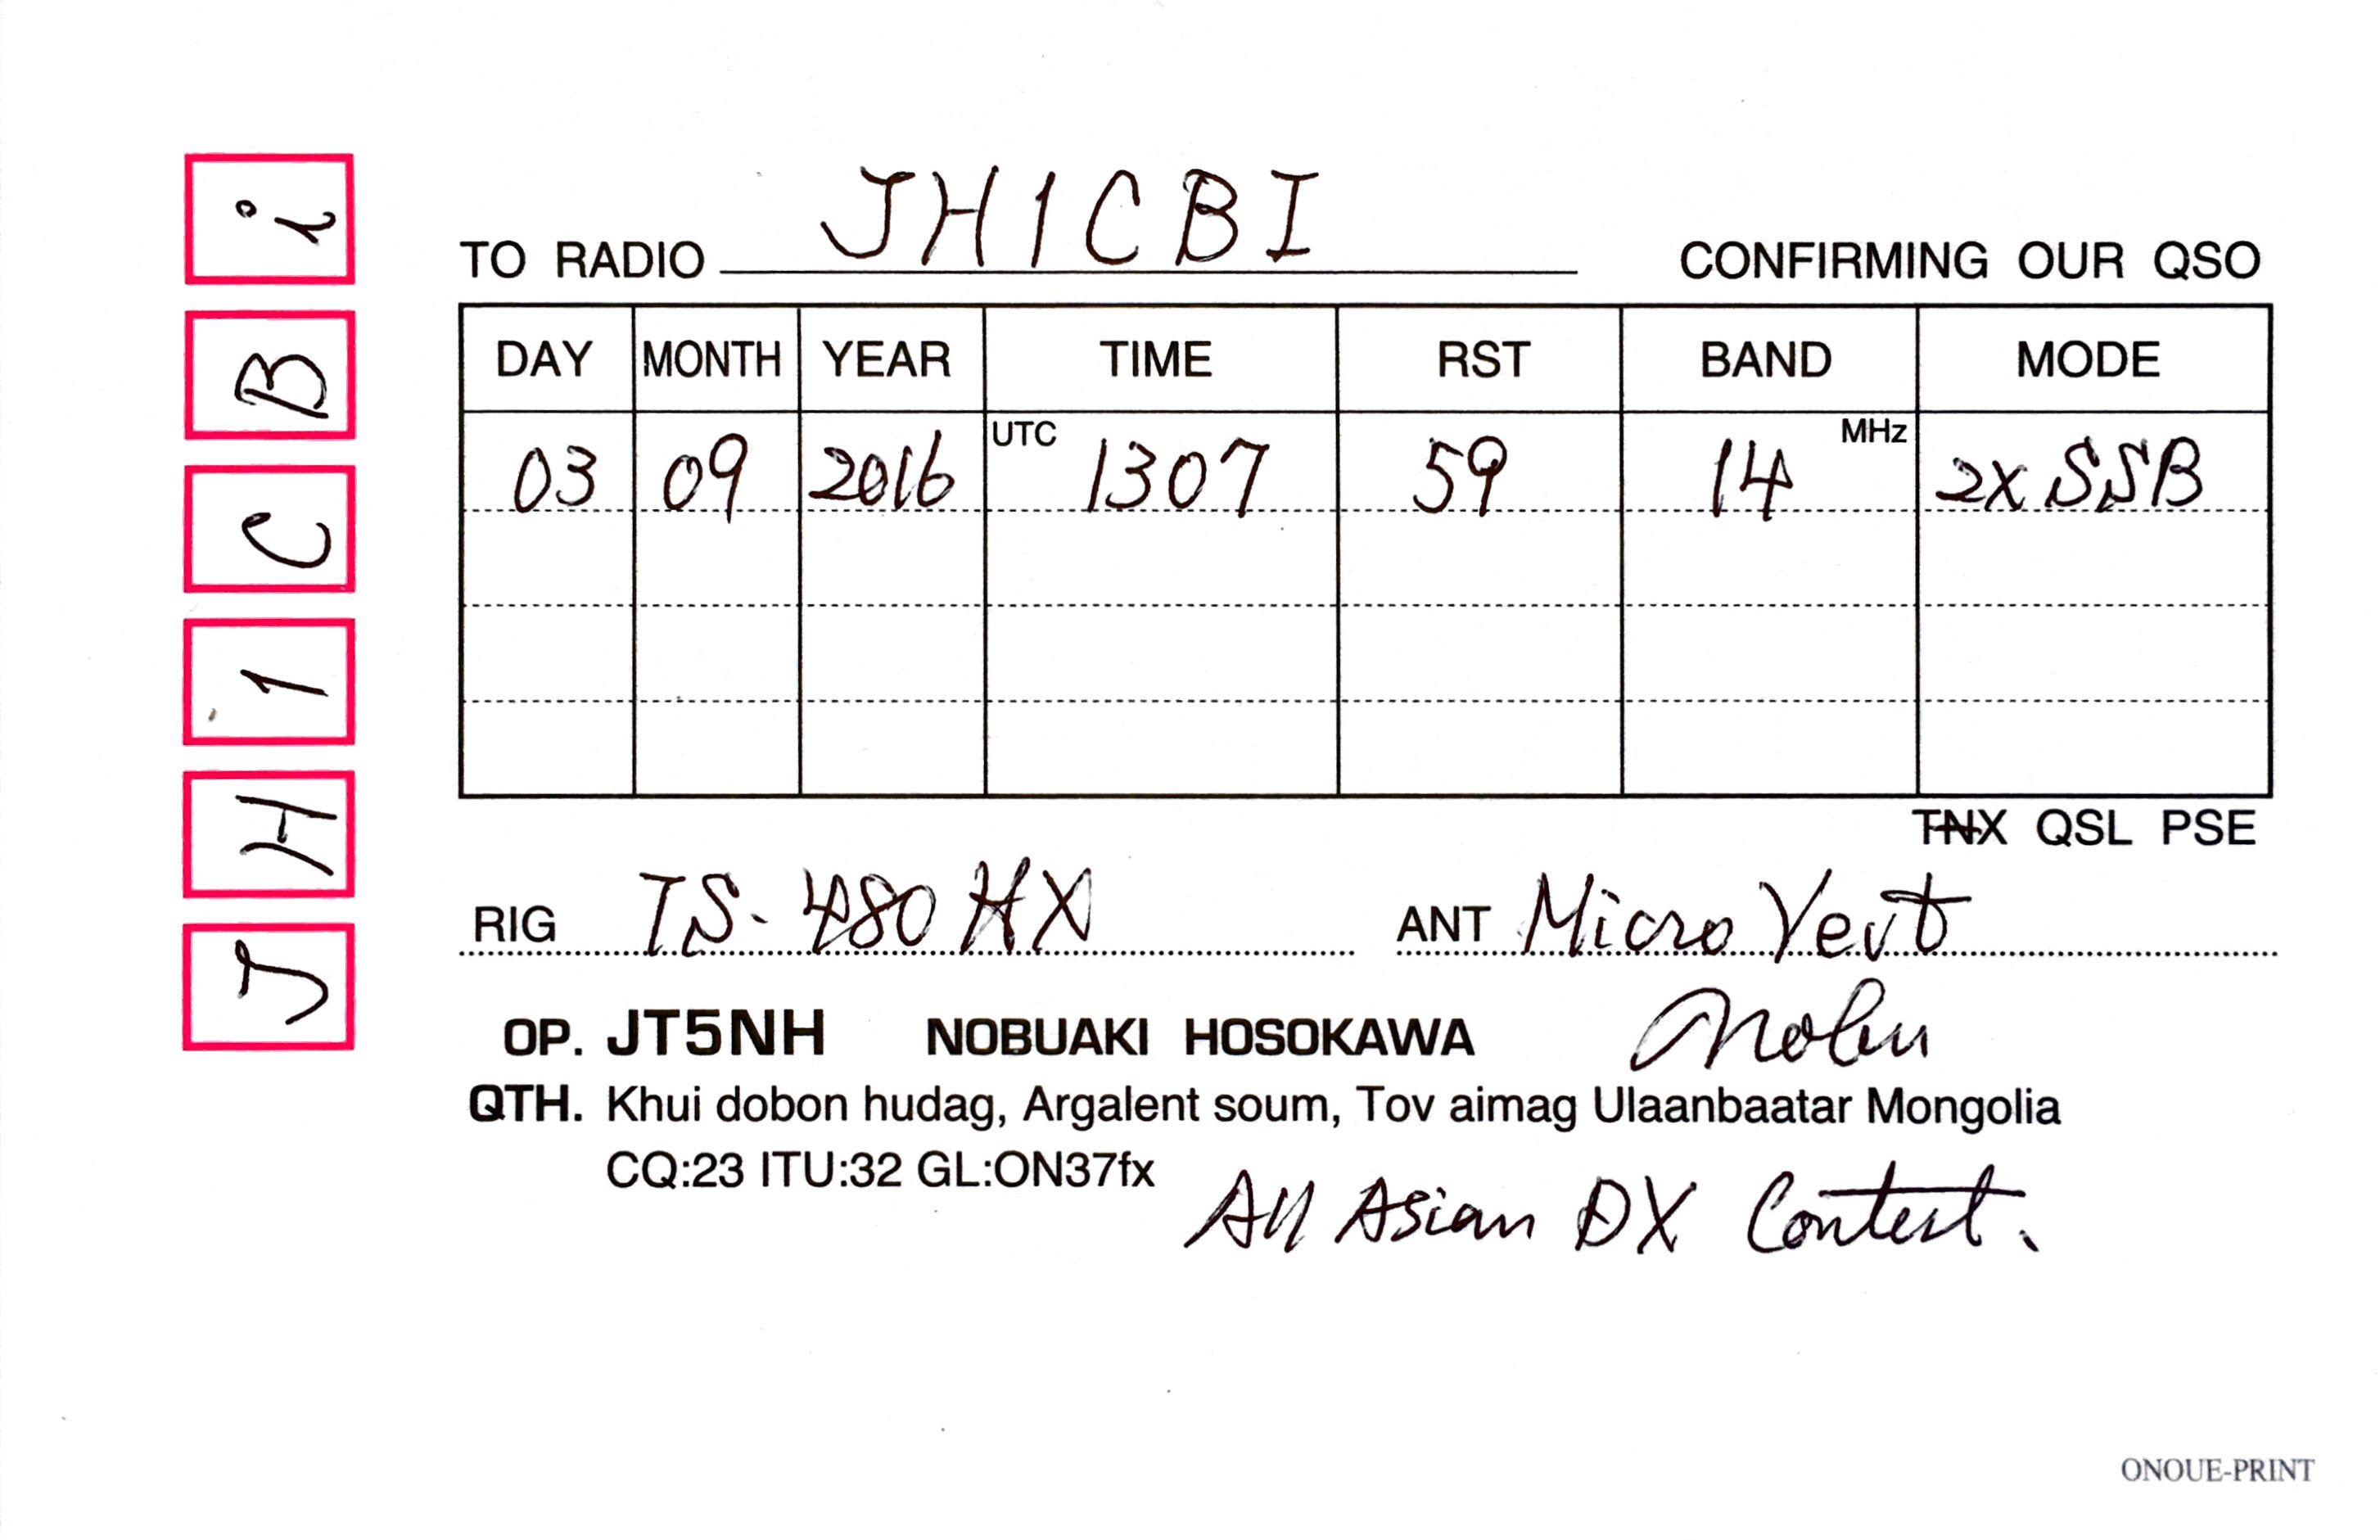 J H 1 C B i
TO RADIO JH1CBI CONFIRMING OUR QSO
DAY MONTH YEAR TIME RST BAND MODE
03 09 2016 UTC 1307 59 14 MHz 2X SSB
TNX QSL PSE
RIG TS-480HX ANT Micro Vert
OP. JT5NH NOBUAKI HOSOKAWA Nobu
QTH. Khui dobon hudag, Argalent soum, Tov aimag Ulaanbaatar Mongolia
CQ:23 ITU:32 GL:ON37fx
All Asian DX Contest.
ONOUE-PRINT